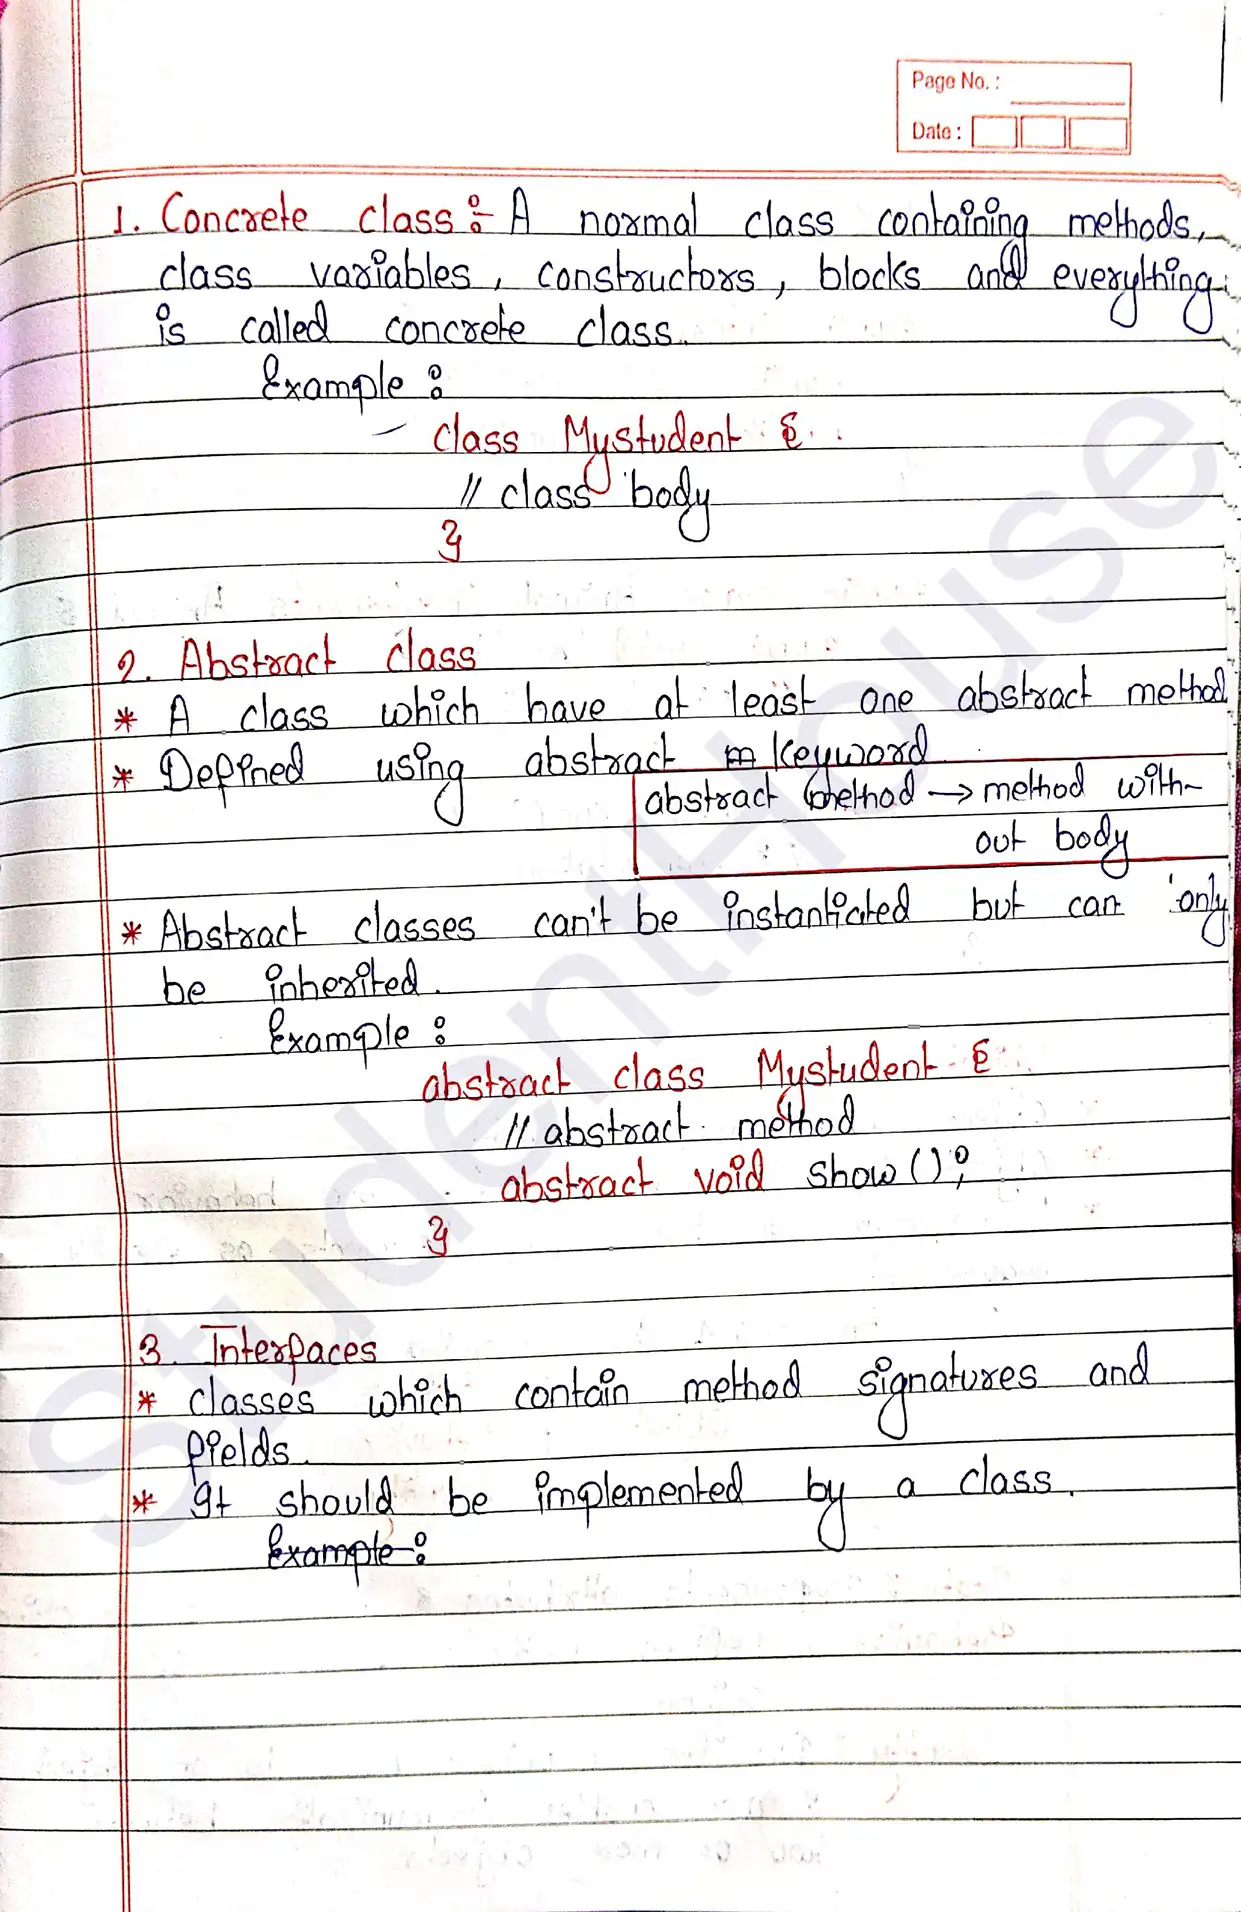 Page No. :
Date :
1. Concrete class :- A normal class containing methods,
class variables, constructors, blocks and everything
is called concrete class.
Example :
class Mystudent {
// class body
}
2. Abstract class
* A class which have at least one abstract method
* Defined using abstract keyword
abstract method → method with-
out body
* Abstract classes can't be instantiated but can only
be inherited.
Example :
abstract class Mystudent {
// abstract method
abstract void show();
}
3. Interfaces
* classes which contain method signatures and
fields.
* It should be implemented by a class.
Example :
StudentHouse